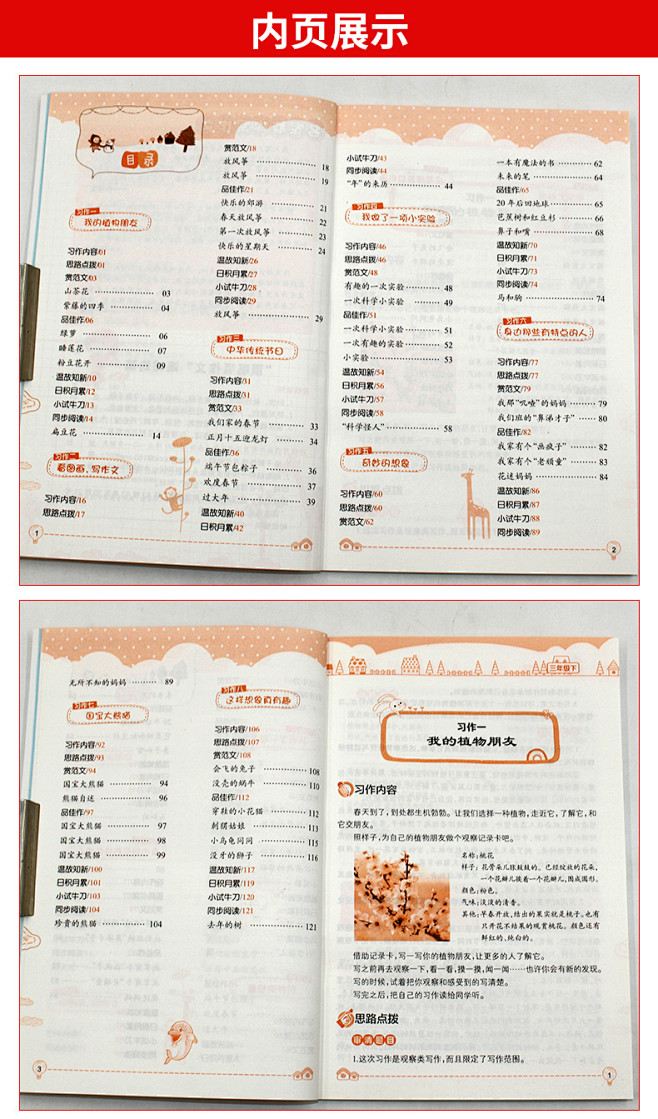 内页展示
目录
习作一
我的植物朋友
习作内容/01
思路点拨/01
赏范文/03
山茶花 03
紫藤的四季 04
品佳作/06
绿萝 06
睡莲花 07
粉豆花开 09
温故知新/10
日积月累/12
小试牛刀/13
同步阅读/14
扁豆花 14
习作二
看图画,写作文
习作内容/16
思路点拨/17
1
赏范文/18
放风筝 18
放风筝 19
品佳作/21
快乐的郊游 21
春天放风筝 22
第一次放风筝 23
快乐的星期天 24
温故知新/26
日积月累/27
小试牛刀/28
同步阅读/29
放风筝 29
习作三
中华传统节日
习作内容/31
思路点拨/31
赏范文/33
我们家的春节 33
正月十五迎龙灯 34
品佳作/36
端午节包粽子 36
欢度春节 37
过大年 39
温故知新/40
日积月累/42
小试牛刀/43
同步阅读/44
“年”的来历 44
习作四
我做了一项小实验
习作内容/46
思路点拨/46
赏范文/48
有趣的一次实验 48
一次科学小实验 49
品佳作/51
一次科学小实验 51
一次有趣的实验 52
小实验 53
温故知新/54
日积月累/56
小试牛刀/57
同步阅读/58
“科学怪人” 58
习作五
奇妙的想象
习作内容/60
思路点拨/60
赏范文/62
一本有魔法的书 62
未来的笔 64
品佳作/65
20年后回地球 65
芭蕉树和红豆杉 66
鼻子和嘴 68
温故知新/70
日积月累/71
小试牛刀/73
同步阅读/74
马和驹 74
习作六
身边那些有特点的人
习作内容/77
思路点拨/77
赏范文/79
我那“叽喳”的妈妈 79
我们班的“鼻涕才子” 80
品佳作/82
我家有个“画疯子” 82
我家有个“老顽童” 83
花迷妈妈 84
温故知新/86
日积月累/87
小试牛刀/88
同步阅读/89
2
无所不知的妈妈 89
习作七
国宝大熊猫
习作内容/92
思路点拨/93
赏范文/94
国宝大熊猫 94
熊猫自述 96
品佳作/97
国宝大熊猫 97
国宝大熊猫 98
国宝大熊猫 99
温故知新/100
日积月累/101
小试牛刀/103
同步阅读/104
珍贵的熊猫 104
3
习作八
这样想象真有趣
习作内容/106
思路点拨/107
赏范文/108
会飞的兔子 108
没壳的蜗牛 110
品佳作/112
穿鞋的小花猫 112
刺猬姑娘 113
小乌龟问问 115
没牙的狮子 116
温故知新/117
日积月累/119
小试牛刀/120
同步阅读/121
去年的树 121
三年级下
习作一
我的植物朋友
习作内容
春天到了,到处都生机勃勃。让我们选择一种植物,走近它,了解它,和
它交朋友。
照样子,为自己的植物朋友做个观察记录卡吧。
名称:桃花
样子:花骨朵儿胀鼓鼓的。已经绽放的花朵,
一个花瓣儿挨着一个花瓣儿,围成圆形。
颜色:粉色。
气味:淡淡的清香。
其他:早春开放,结出的果实就是桃子。也有
只开花不结果的观赏桃花。颜色还有
鲜红的、纯白的。
借助记录卡,写一写你的植物朋友,让更多的人了解它。
写之前再去观察一下,看一看,摸一摸,闻一闻……也许你会有新的发现。
写的时候,试着把你观察和感受到的写清楚。
写完之后,把自己的习作读给同学听。
思路点拨
审清题目
1.这次习作是观察类写作,而且限定了写作范围。
1